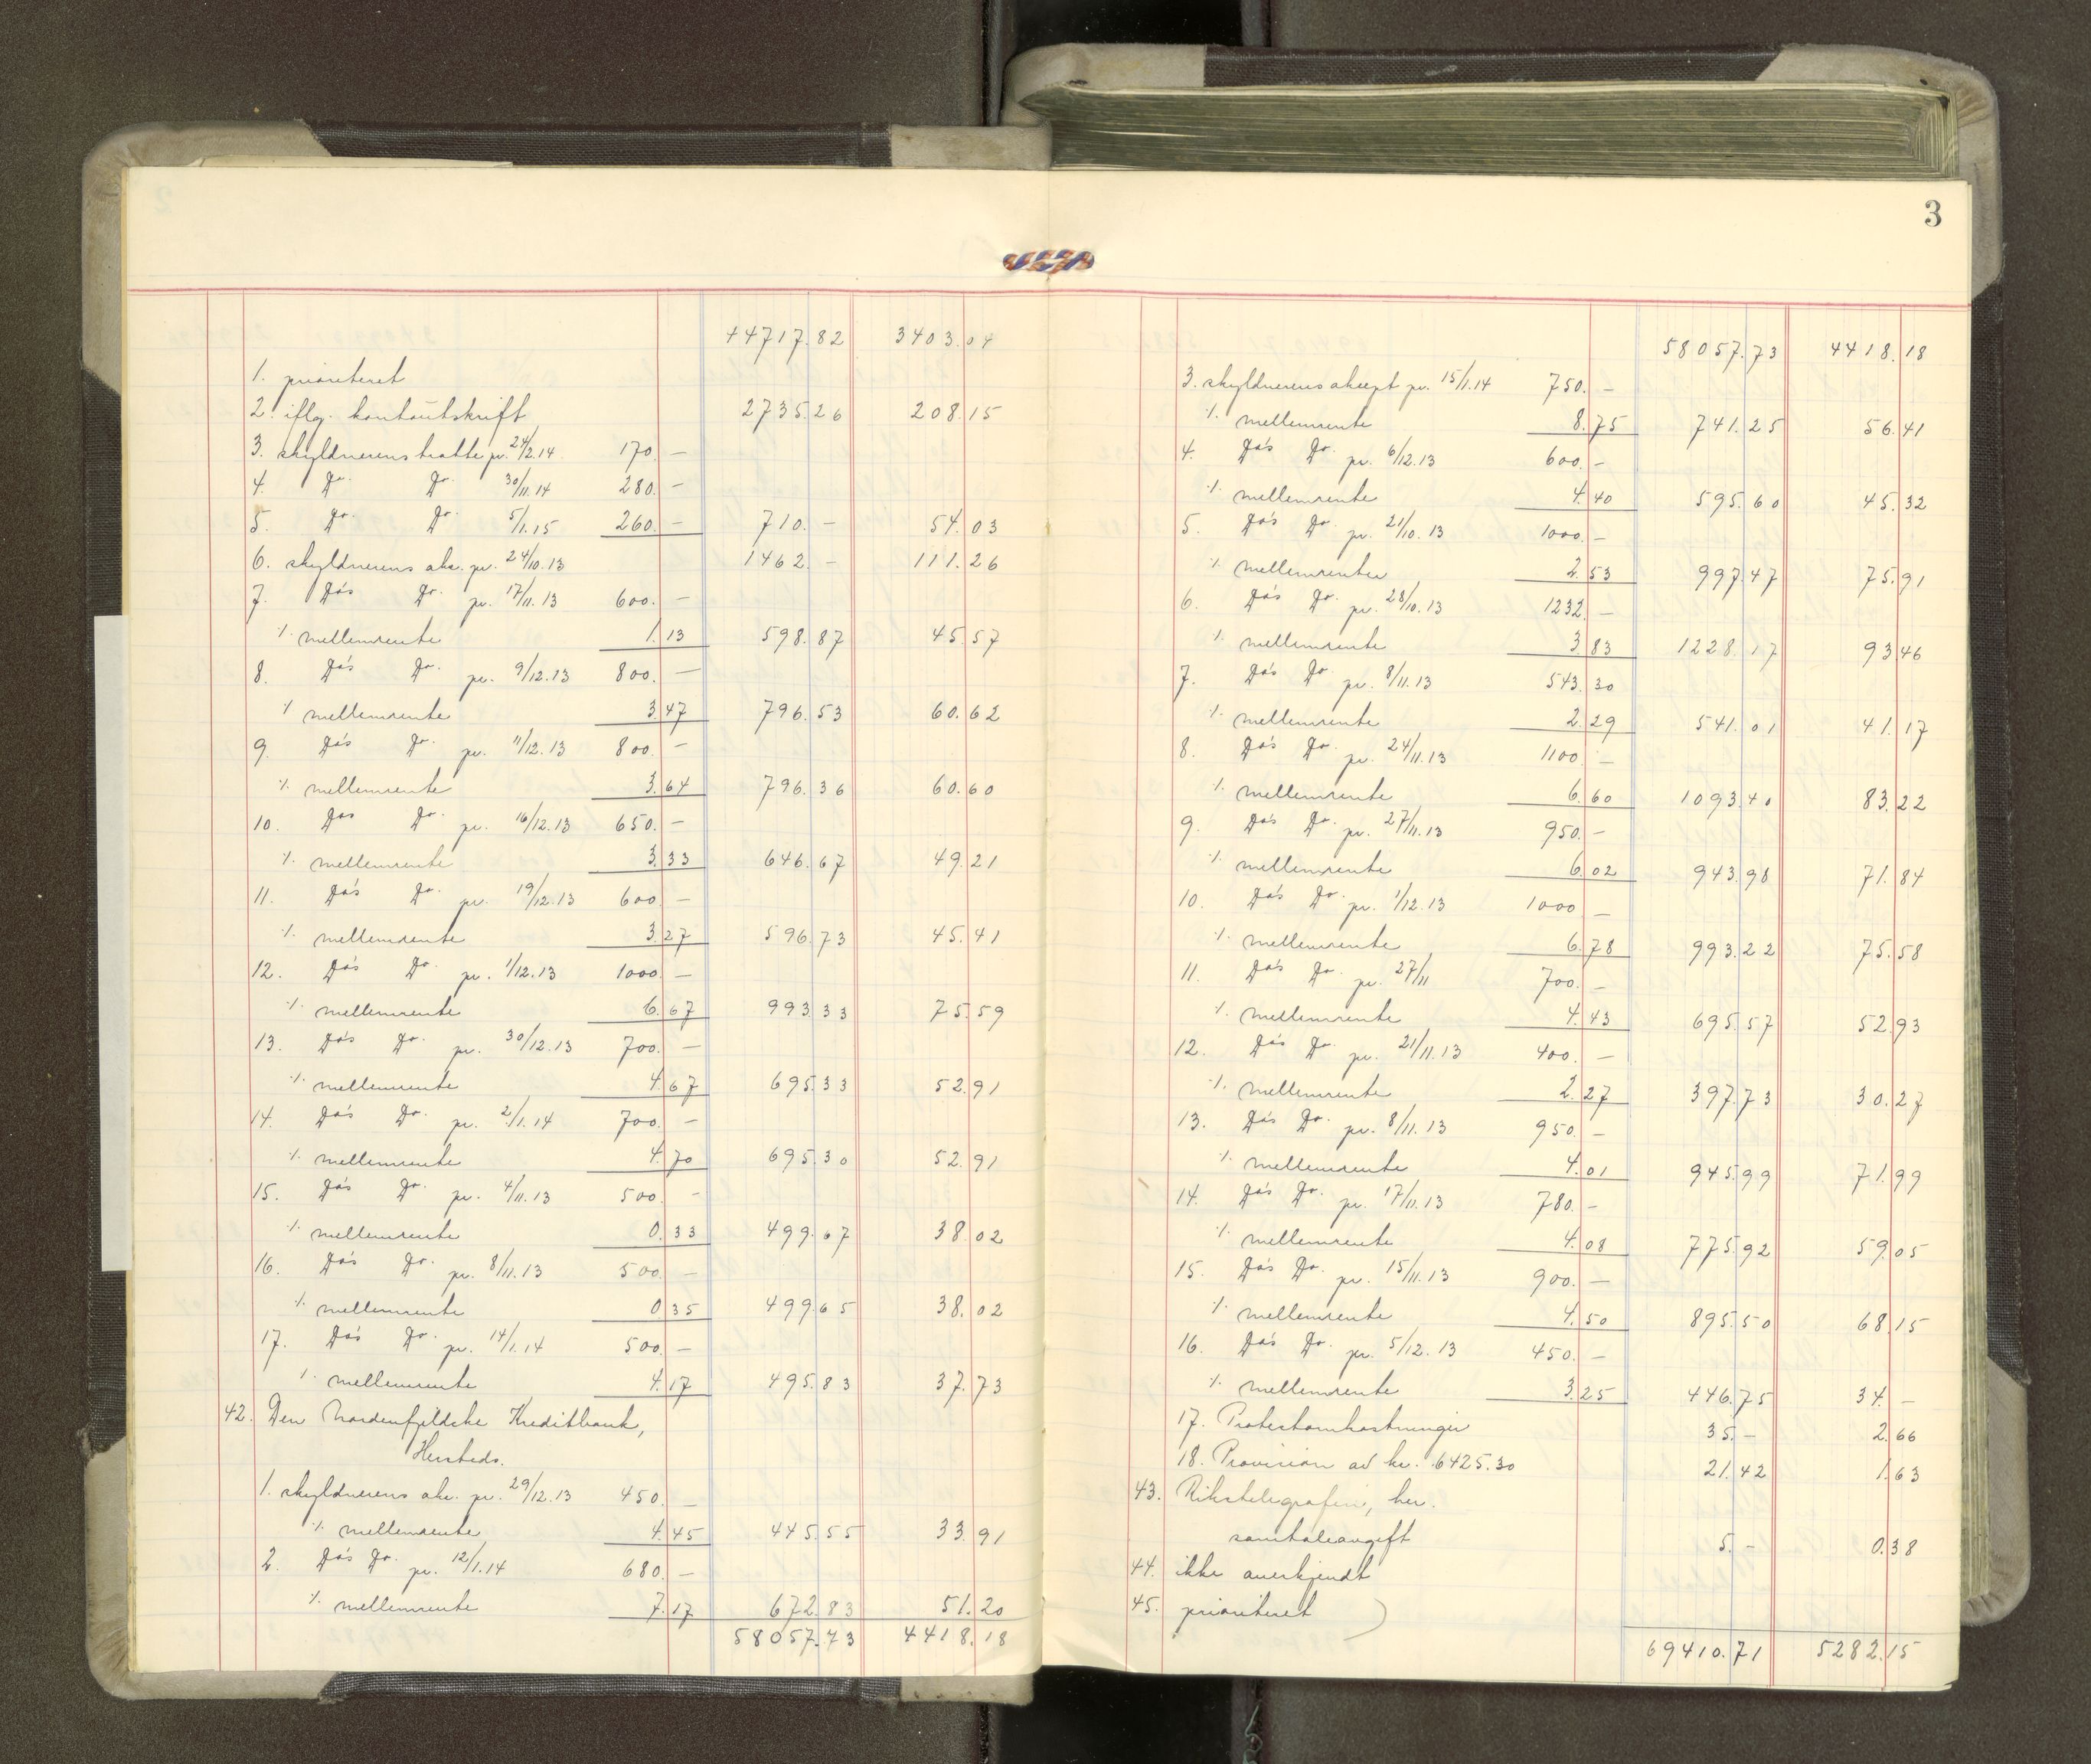 44717.82 3403.04
1. prioriteret
2. iflg. kontoutskrift 2735.26 208.15
3. skyldnerens tratte pr. 24/2.14 170. —
4. Do. Do. 30/11.14 280. —
5. Do. Do. 5/1.15 260. — 710. — 54.03
6. skyldnerens akc. pr. 24/10.13 1462. — 111.26
7. Do's Do. pr. 17/11.13 600. —
⁒ mellemrente 1.13 598.87 45.57
8. Do's Do. pr. 9/12.13 800. —
⁒ mellemrente 3.47 796.53 60.62
9. Do's Do. pr. 11/12.13 800. —
⁒ mellemrente 3.64 796.36 60.60
10. Do's Do. pr. 16/12.13 650. —
⁒ mellemrente 3.33 646.67 49.21
11. Do's Do. pr. 19/12.13 600. —
⁒ mellemrente 3.27 596.73 45.41
12. Do's Do. pr. 1/12.13 1000. —
⁒ mellemrente 6.67 993.33 75.59
13. Do's Do. pr. 30/12.13 700. —
⁒ mellemrente 4.67 695.33 52.91
14. Do's Do. pr. 2/1.14 700. —
⁒ mellemrente 4.70 695.30 52.91
15. Do's Do. pr. 4/11.13 500. —
⁒ mellemrente 0.33 499.67 38.02
16. Do's Do. pr. 8/11.13 500. —
⁒ mellemrente 0.35 499.65 38.02
17. Do's Do. pr. 14/1.14 500. —
⁒ mellemrente 4.17 495.83 37.73
42. Den Nordenfjeldske Kreditbank,
Hersteds.
1. skyldnerens akc. pr. 29/12.13 450. —
⁒ mellemrente 4.45 445.55 33.91
2. Do's Do. pr. 12/1.14 680. —
⁒ mellemrente 7.17 672.83 51.20
58057.73 4418.18
3
58057.73 4418.18
3. skyldnerens aksept pr. 15/1.14 750. —
⁒ mellemrente 8.75 741.25 56.41
4. Do's Do. pr. 6/12.13 600. —
⁒ mellemrente 4.40 595.60 45.32
5. Do's Do. pr. 21/10.13 1000. —
⁒ mellemrente 2.53 997.47 75.91
6. Do's Do. pr. 28/10.13 1232. —
⁒ mellemrente 3.83 1228.17 93.46
7. Do's Do. pr. 8/11.13 543.30
⁒ mellemrente 2.29 541.01 41.17
8. Do's Do. pr. 24/11.13 1100. —
⁒ mellemrente 6.60 1093.40 83.22
9. Do's Do. pr. 27/11.13 950. —
⁒ mellemrente 6.02 943.98 71.84
10. Do's Do. pr. 1/12.13 1000 —
⁒ mellemrente 6.78 993.22 75.58
11. Do's Do. pr. 27/11 700. —
⁒ mellemrente 4.43 695.57 52.93
12. Do's Do. pr. 21/11.13 400. —
⁒ mellemrente 2.27 397.73 30.27
13. Do's Do. pr. 8/11.13 950. —
⁒ mellemrente 4.01 945.99 71.99
14. Do's Do. pr. 17/11.13 780. —
⁒ mellemrente 4.08 775.92 59.05
15. Do's Do. pr. 15/11.13 900. —
⁒ mellemrente 4.50 895.50 68.15
16. Do's Do. pr. 5/12.13 450. —
⁒ mellemrente 3.25 446.75 34. —
17. Protestomkostninger 35. — 2.66
18. Provision av kr. 6425.30 21.42 1.63
43. Rikstelegrafen, her.
samtaleavgift 5. — 0.38
44. ikke anerkjendt
45. prioriteret )
69410.71 5282.15